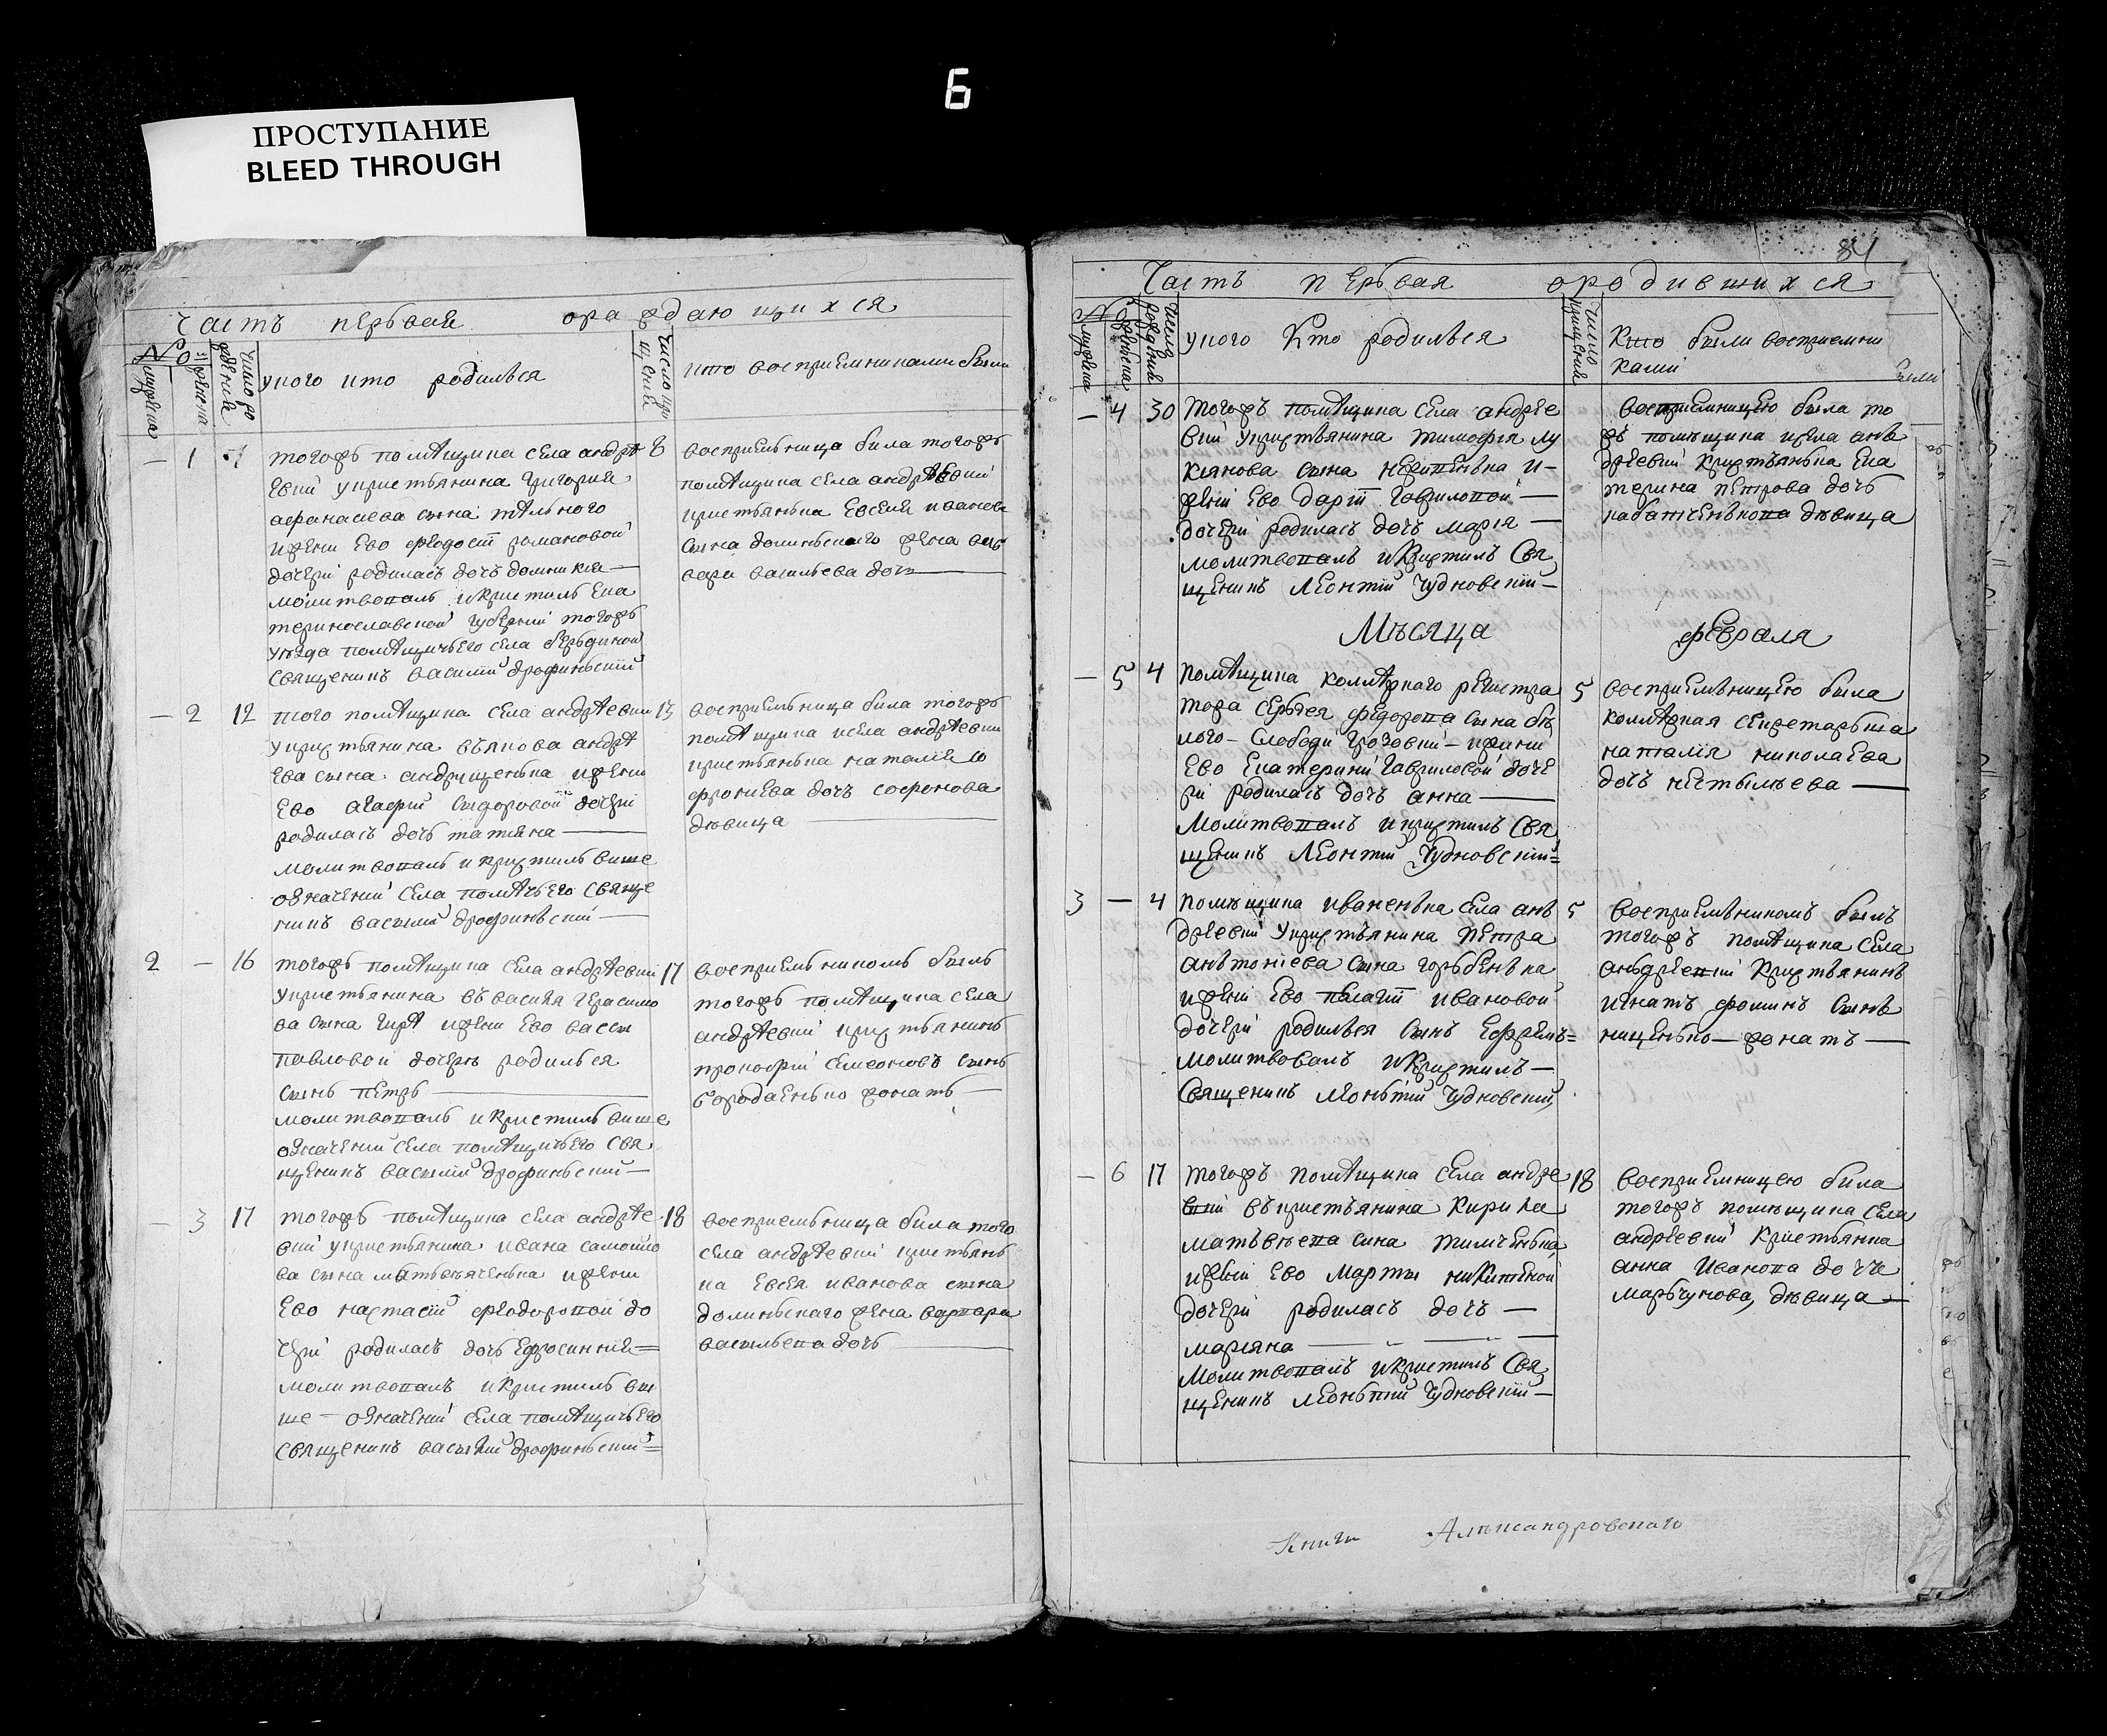 6
ПРОСТУПАНИЕ
BLEED THROUGH
часть первая
ораждающихся
№
мужеска
женска
число рождения
у кого кто родилься
число крещения
кто восприемниками были
— 1 7
тогожъ помѣщика села андрѣ
евки укристьянина григория
афанасиева сына
ижени ево феодосіи романовой
дочерй родилась дочь домникия
молитвовалъ икристилъ ека
теринославской губернии тогожъ
уезда помѣщичьего села
священикъ василий дрофинъский
8
восприемьница била тогожъ
помѣщика села андрѣевкй
кристьянька евсея иванова
сына долиньского жена вар
вара васильева дочь
— 2 12
того помѣщика села андрѣевки
укристьянина андрѣ
ева сына андрющенька ижени
ево агафий сидоровой дочерй
родилась дочь татяна
молитвовалъ икристилъ више
означений села помѣчьего свяще
никъ василий дрофинъский
13
восприемьница била тогожъ
помѣщика исела андрѣевки
кристьянька наталия
фрониева дочь софонова
дѣвица
2 — 16
тогожъ помѣщика села андрѣевки
укристьянина василя герасимо
ва сына ижени ево васси
павловой дочерѣ родилься
сынь петръ
молитвовалъ икристилъ више
означений села помѣщичьего свя
щеникъ василий дрофинъский
17
восприемьникомъ быль
тогожъ помѣщика села
андрѣевкй кристьянинъ
прокофий симеоновъ сынь
бородаенько жонать
— 3 17
тогожъ помѣщика села андрѣе
вкй укристьянина ивана самойло
ва сына матвѣяченька ижени
ево настасий феодоровой до
черй родилась дочь ефросинния
молитвовалъ икристилъ ви
ше означений села помѣщичьего
священикъ василий дрофинъский
18
восприемьница била того
села андрѣевкй кристьянь
ка евсея иванова сына
долиньскаго жена варвара
васильева дочь
84
Часть первая
ородившихся
№
мужеска
женска
число рождения
укого Кто родилься
число крищения
Кто были восприемни
ками
— 4 30
тогожъ помѣщика села андрѣе
вки укристьянина тимофея лу
киянова сына и
жени ево дарїи гавриловой
дочерй родилась дочь мария
молитвовалъ икристилъ Свя
щеникъ Леонтий Чудновский
восприемницею была то
жъ помѣщика исела анъ
дреевки кристьянька ека
терина петрова дочь
дѣвица
Мѣсяца февраля
— 5 4
помѣщика колѣжкаго регистра
тора сергея федорова сына бѣ
лого Слободи Грозовки ижини
Ево Екатерини гавриловой доче
ри родилась дочь анна
Молитвовалъ икристилъ Свя
щеникъ Леонтий Чудновский
5
восприемьницею была
колѣжкая секретарьша
наталия николаева
дочь
3 — 4
помѣщика иваненька села анъ
дреевки укристьянина петра
анътониева сына горьбенька
ижени ево пелагии ивановой
дочерй родилься сынь Ефремъ
молитвовалъ икристилъ
Священикъ Леонътий Чудновский
5
восприемьникомъ былъ
тогожъ помѣщика села
аньдреевкй кристьянинъ
игнатъ фоминъ сынъ
жонатъ
— 6 17
тогожъ помѣщика села андре
вки въкристьянина Кирила
матьвѣева сина тимченька
ижени ево Марты никитеной
дочерй родилась дочь
марияна
молитвовалъ икристилъ Свя
щеникъ леонътий Чудновский
18
восприемницею била
тогожъ помѣщика села
андреевкй Кристьянка
анна Иванова дочче
марьчукова, дѣвица
Книги Александровскаго